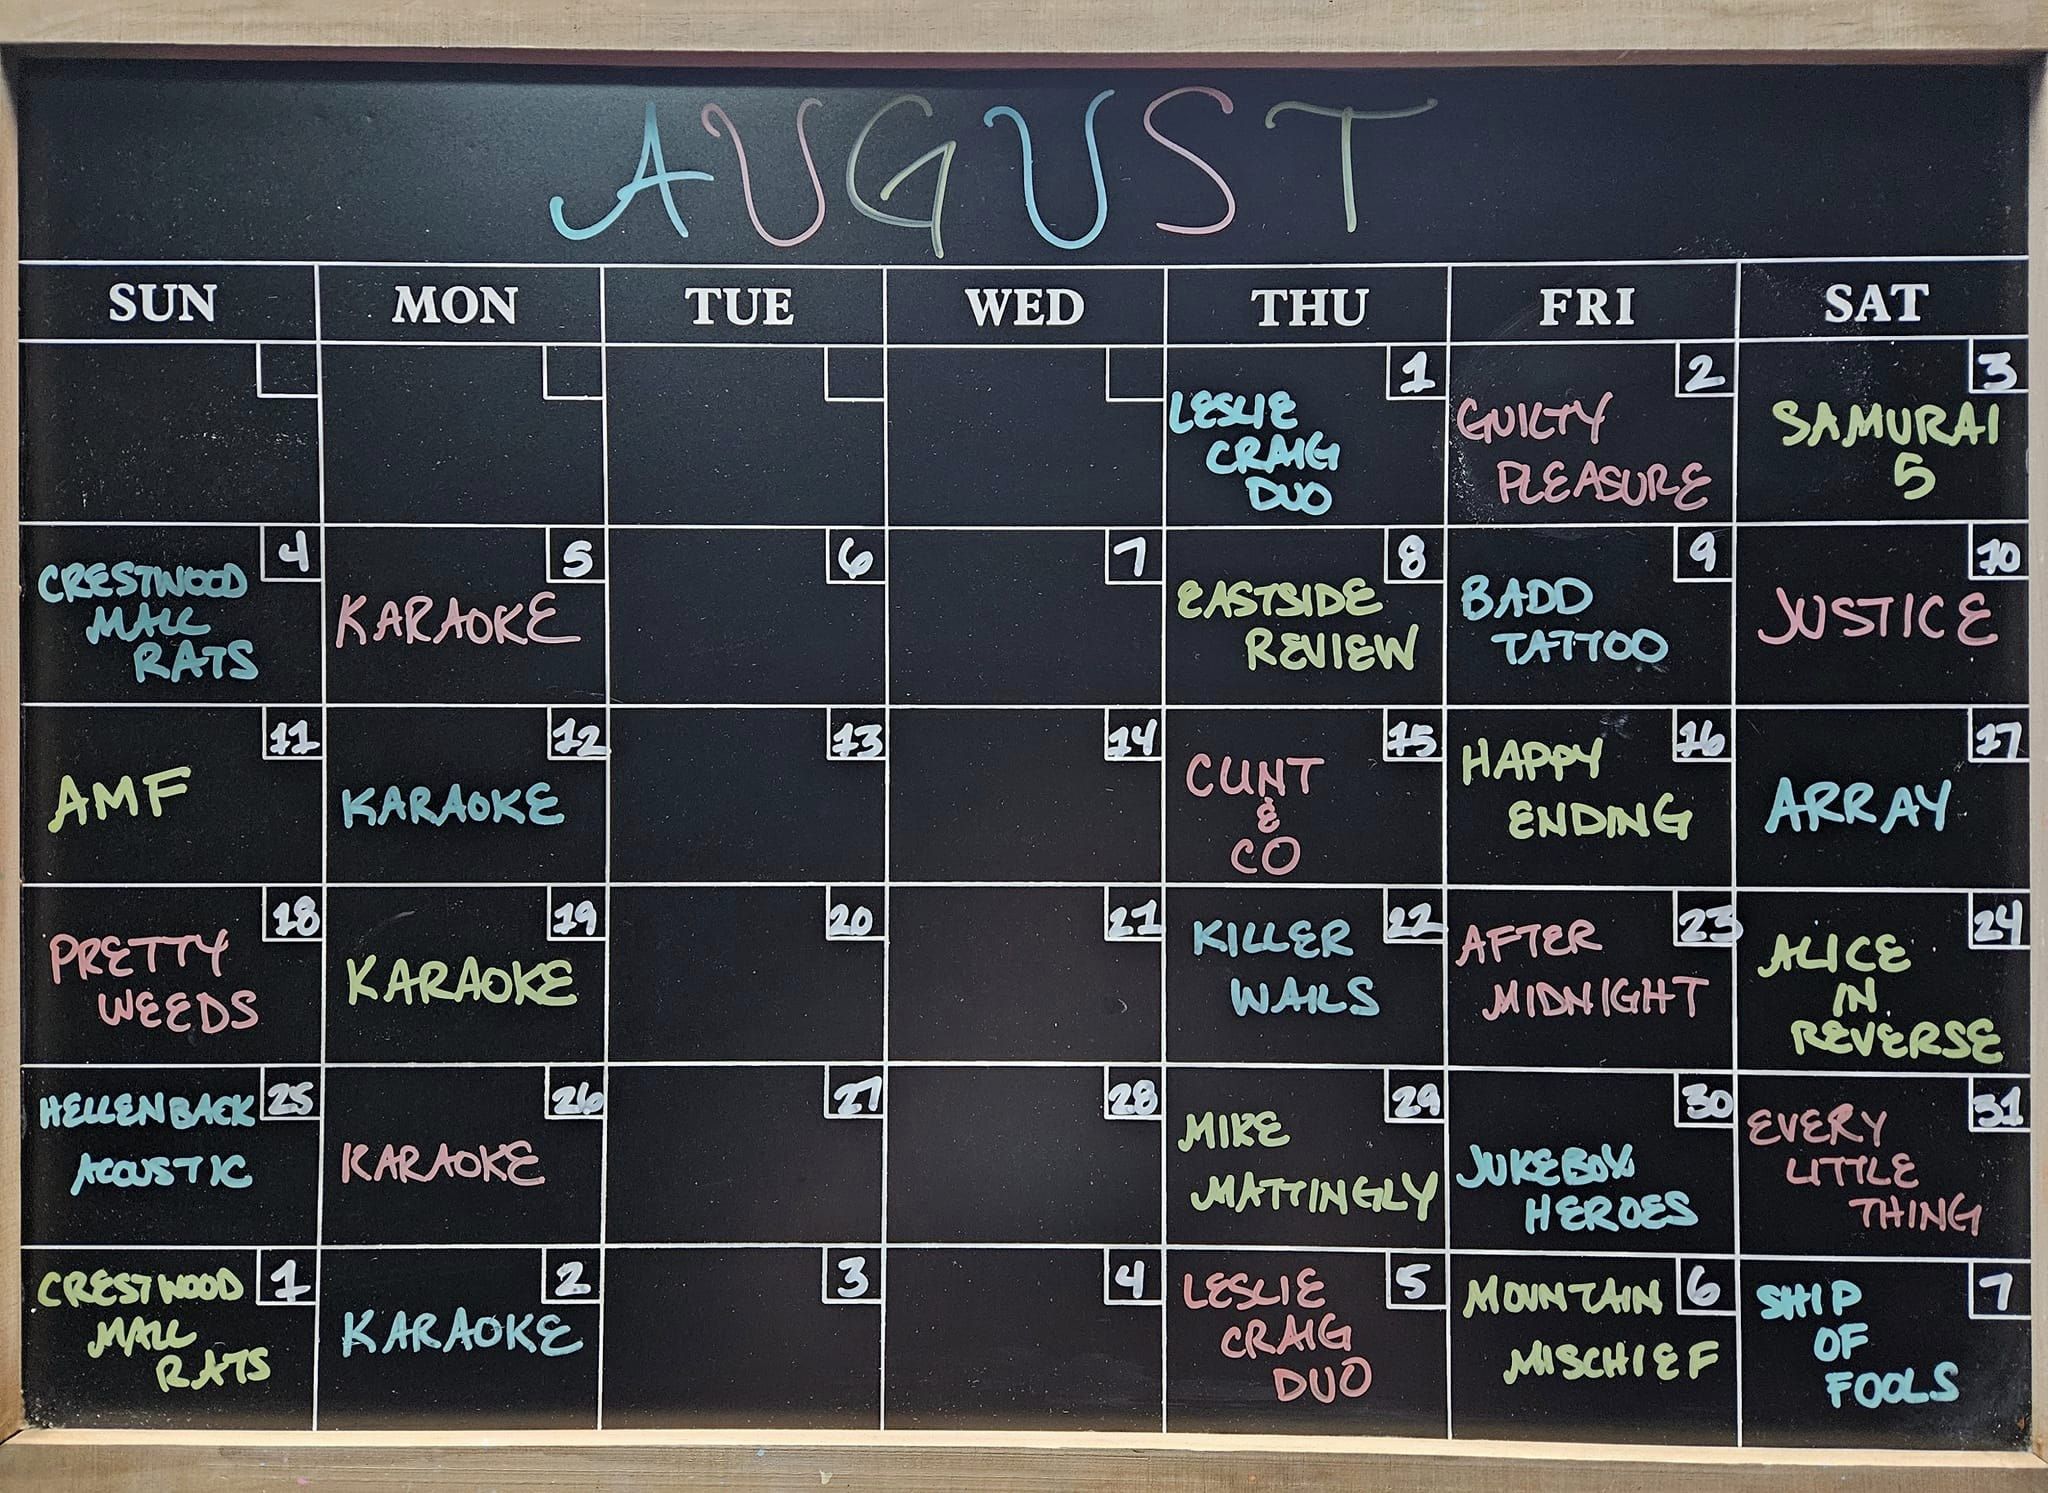 AUGUST
SUN MON TUE WED THU FRI SAT
1 2 3
LESLIE
CRAIG
DUO
GUILTY
PLEASURE
SAMURAI
5
4 5 6 7 8 9 10
CRESTWOOD
MALL
RATS
KARAOKE
EASTSIDE
REVIEW
BADD
TATTOO
JUSTICE
11 12 13 14 15 16 17
AMF
KARAOKE
CUNT
&
CO
HAPPY
ENDING
ARRAY
18 19 20 21 22 23 24
PRETTY
WEEDS
KARAOKE
KILLER
WAILS
AFTER
MIDNIGHT
ALICE
IN
REVERSE
25 26 27 28 29 30 31
HELLENBACK
ACOUSTIC
KARAOKE
MIKE
MATTINGLY
JUKEBOX
HEROES
EVERY
LITTLE
THING
1 2 3 4 5 6 7
CRESTWOOD
MALL
RATS
KARAOKE
LESLIE
CRAIG
DUO
MOUNTAIN
MISCHIEF
SHIP
OF
FOOLS